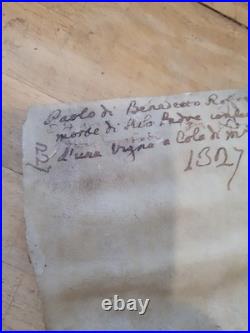 Paolo di Benedetto
morte di suo Padre
d'una Vigna a Cola di M
1327